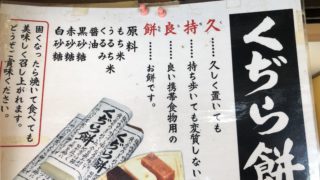 くぢら餅
久……久しく置いても
持……持ち歩いても変質しない
良……良い携帯食物用の
餅……お餅です。
原料
もち米
うるち米
くるみ
醤油
黒砂糖
赤砂糖
白砂糖
固くなったら焼いて食べても
美味しく召し上がれます。
どうぞご賞味ください。
くぢら餅